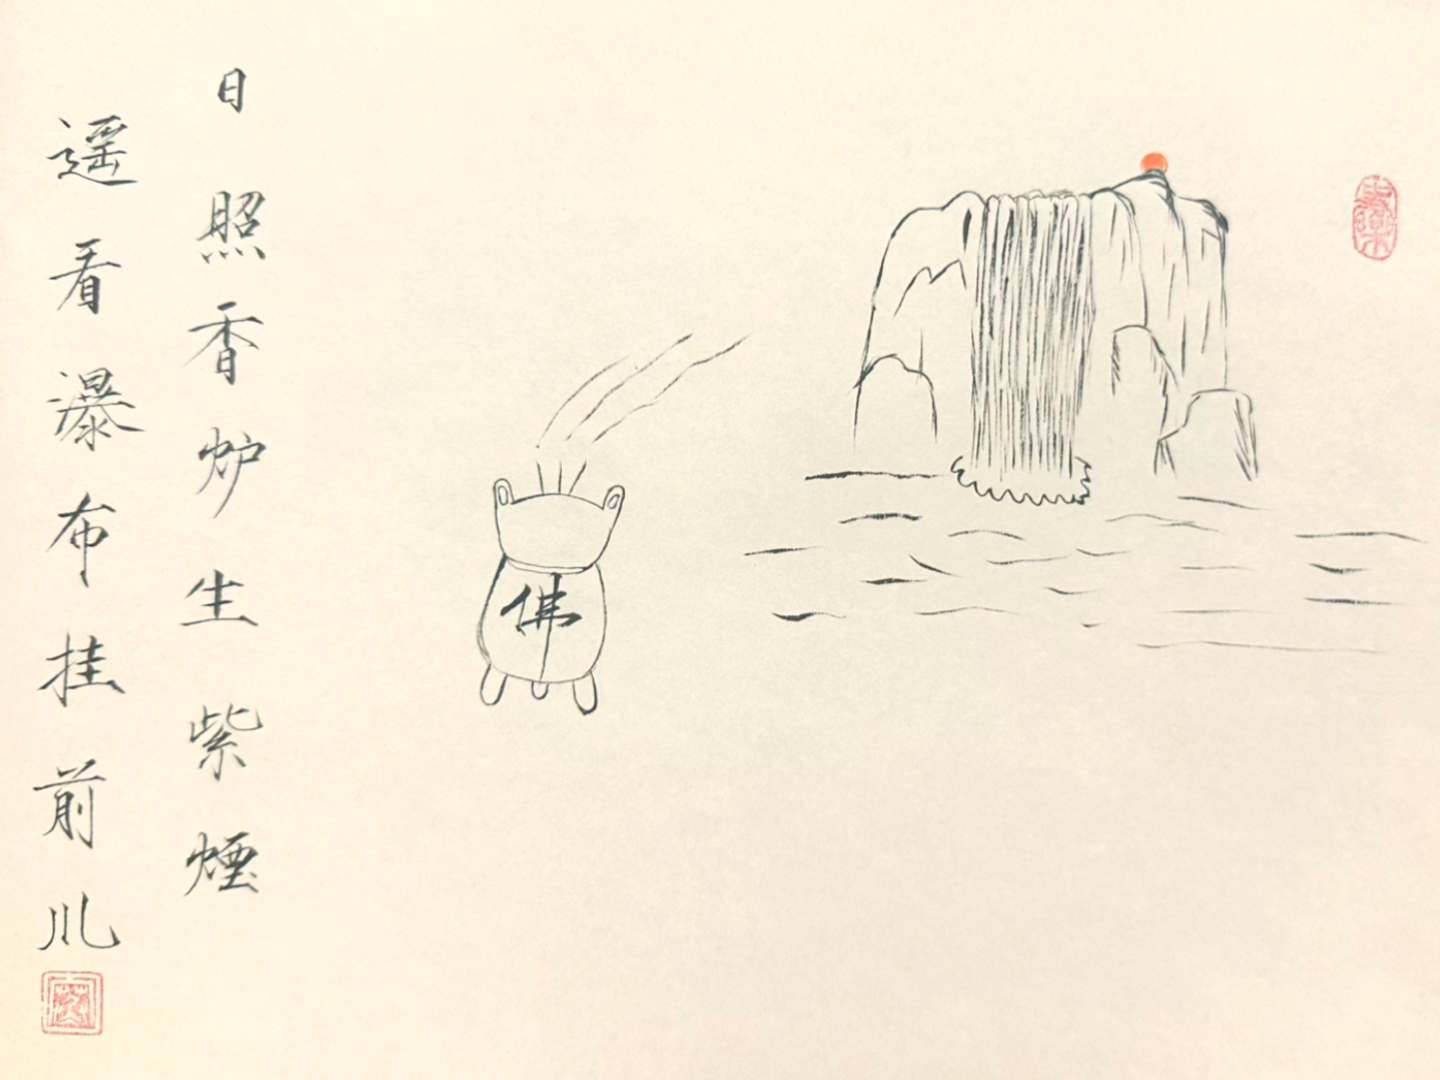 日照香炉生紫煙
遥看瀑布挂前川
佛